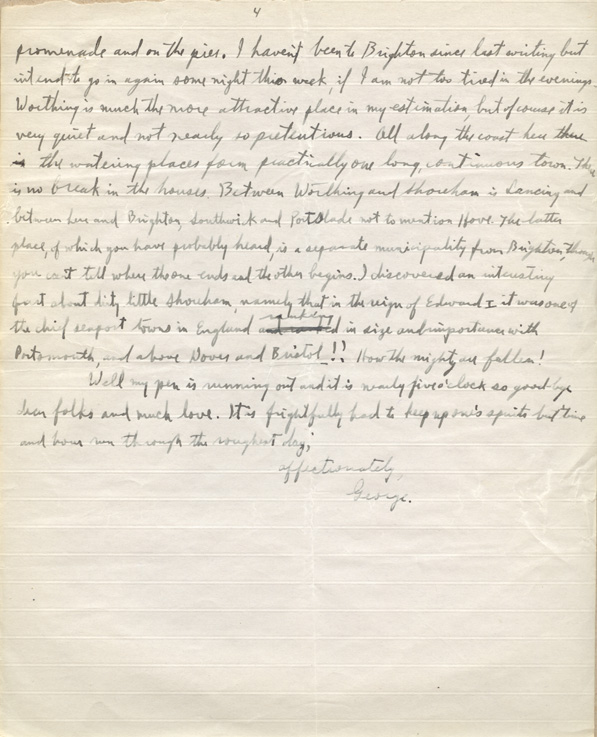 4
promenade and on the piers. I haven't been to Brighton since last writing but
intend to go in again some night this week, if I am not too tired in the evenings.
Worthing is much the more attractive place in my estimation, but of course it is
very quiet and not nearly so pretentious. All along the coast here there
is the watering places form practically one long, continuous town. There
is no break in the houses. Between Worthing and Shoreham is Lancing and
between here and Brighton, Southwick and Portslade not to mention Hove. The latter
place, of which you have probably heard, is a separate municipality from Brighton though
you can't tell where the one ends and the other begins. I discovered an interesting
fact about dirty little Shoreham, namely that in the reign of Edward I it was one of
the chief seaport towns in England ranked in size and importance with
Portsmouth, and above Dover and Bristol!! How the mighty are fallen!
Well my pen is running out and it is nearly five o'clock so good-bye
dear folks and much love. It is frightfully hard to keep up one's spirits but time
and hour run through the roughest day;
affectionately,
George.